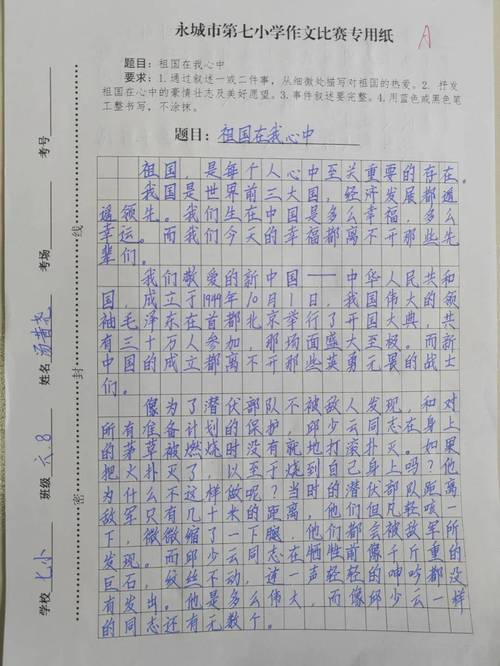 永城市第七小学作文比赛专用纸
A
题目：祖国在我心中
要求：1.通过叙述一或二件事，从细微处描写对祖国的热爱。2.抒发
祖国在心中的豪情壮志及美好愿望。3.事件叙述要完整。4.用蓝色或黑色笔
工整书写，不涂抹。
题目：祖国在我心中
祖国，是每个人心中至关重要的存在。
我国是世界前三大国，经济发展都遥
遥领先。我们生在中国是多么幸福，多么
幸运。而我们今天的幸福都离不开那些先
辈们。
我们敬爱的新中国——中华人民共和
国，成立于1949年10月1日，我国伟大的领
袖毛泽东在首都北京举行了开国大典，共
有三十万人参加，那场面盛大至极。而新
中国的成立都离不开那些英勇无畏的战士
们。
像为了潜伏部队不被敌人发现，和对
所有准备计划的保护，邱少云同志在身上
的茅草被燃烧时没有就地打滚扑灭。如果
把火扑灭了，以至于烧到自己身上吗？他
为什么不这样做呢？当时的潜伏部队距离
敌军只有几十米的距离，他们但凡轻咳一
下，微微缩了一下腿，他们都会被敌军所
发现。而邱少云同志在牺牲前像千斤重的
巨石，纹丝不动，连一声轻轻的呻吟都没
有发出。他是多么伟大，而像邱少云一样
的同志还有无数个。
学校 七小 班级 六8 姓名 考场 考号
密 封 线